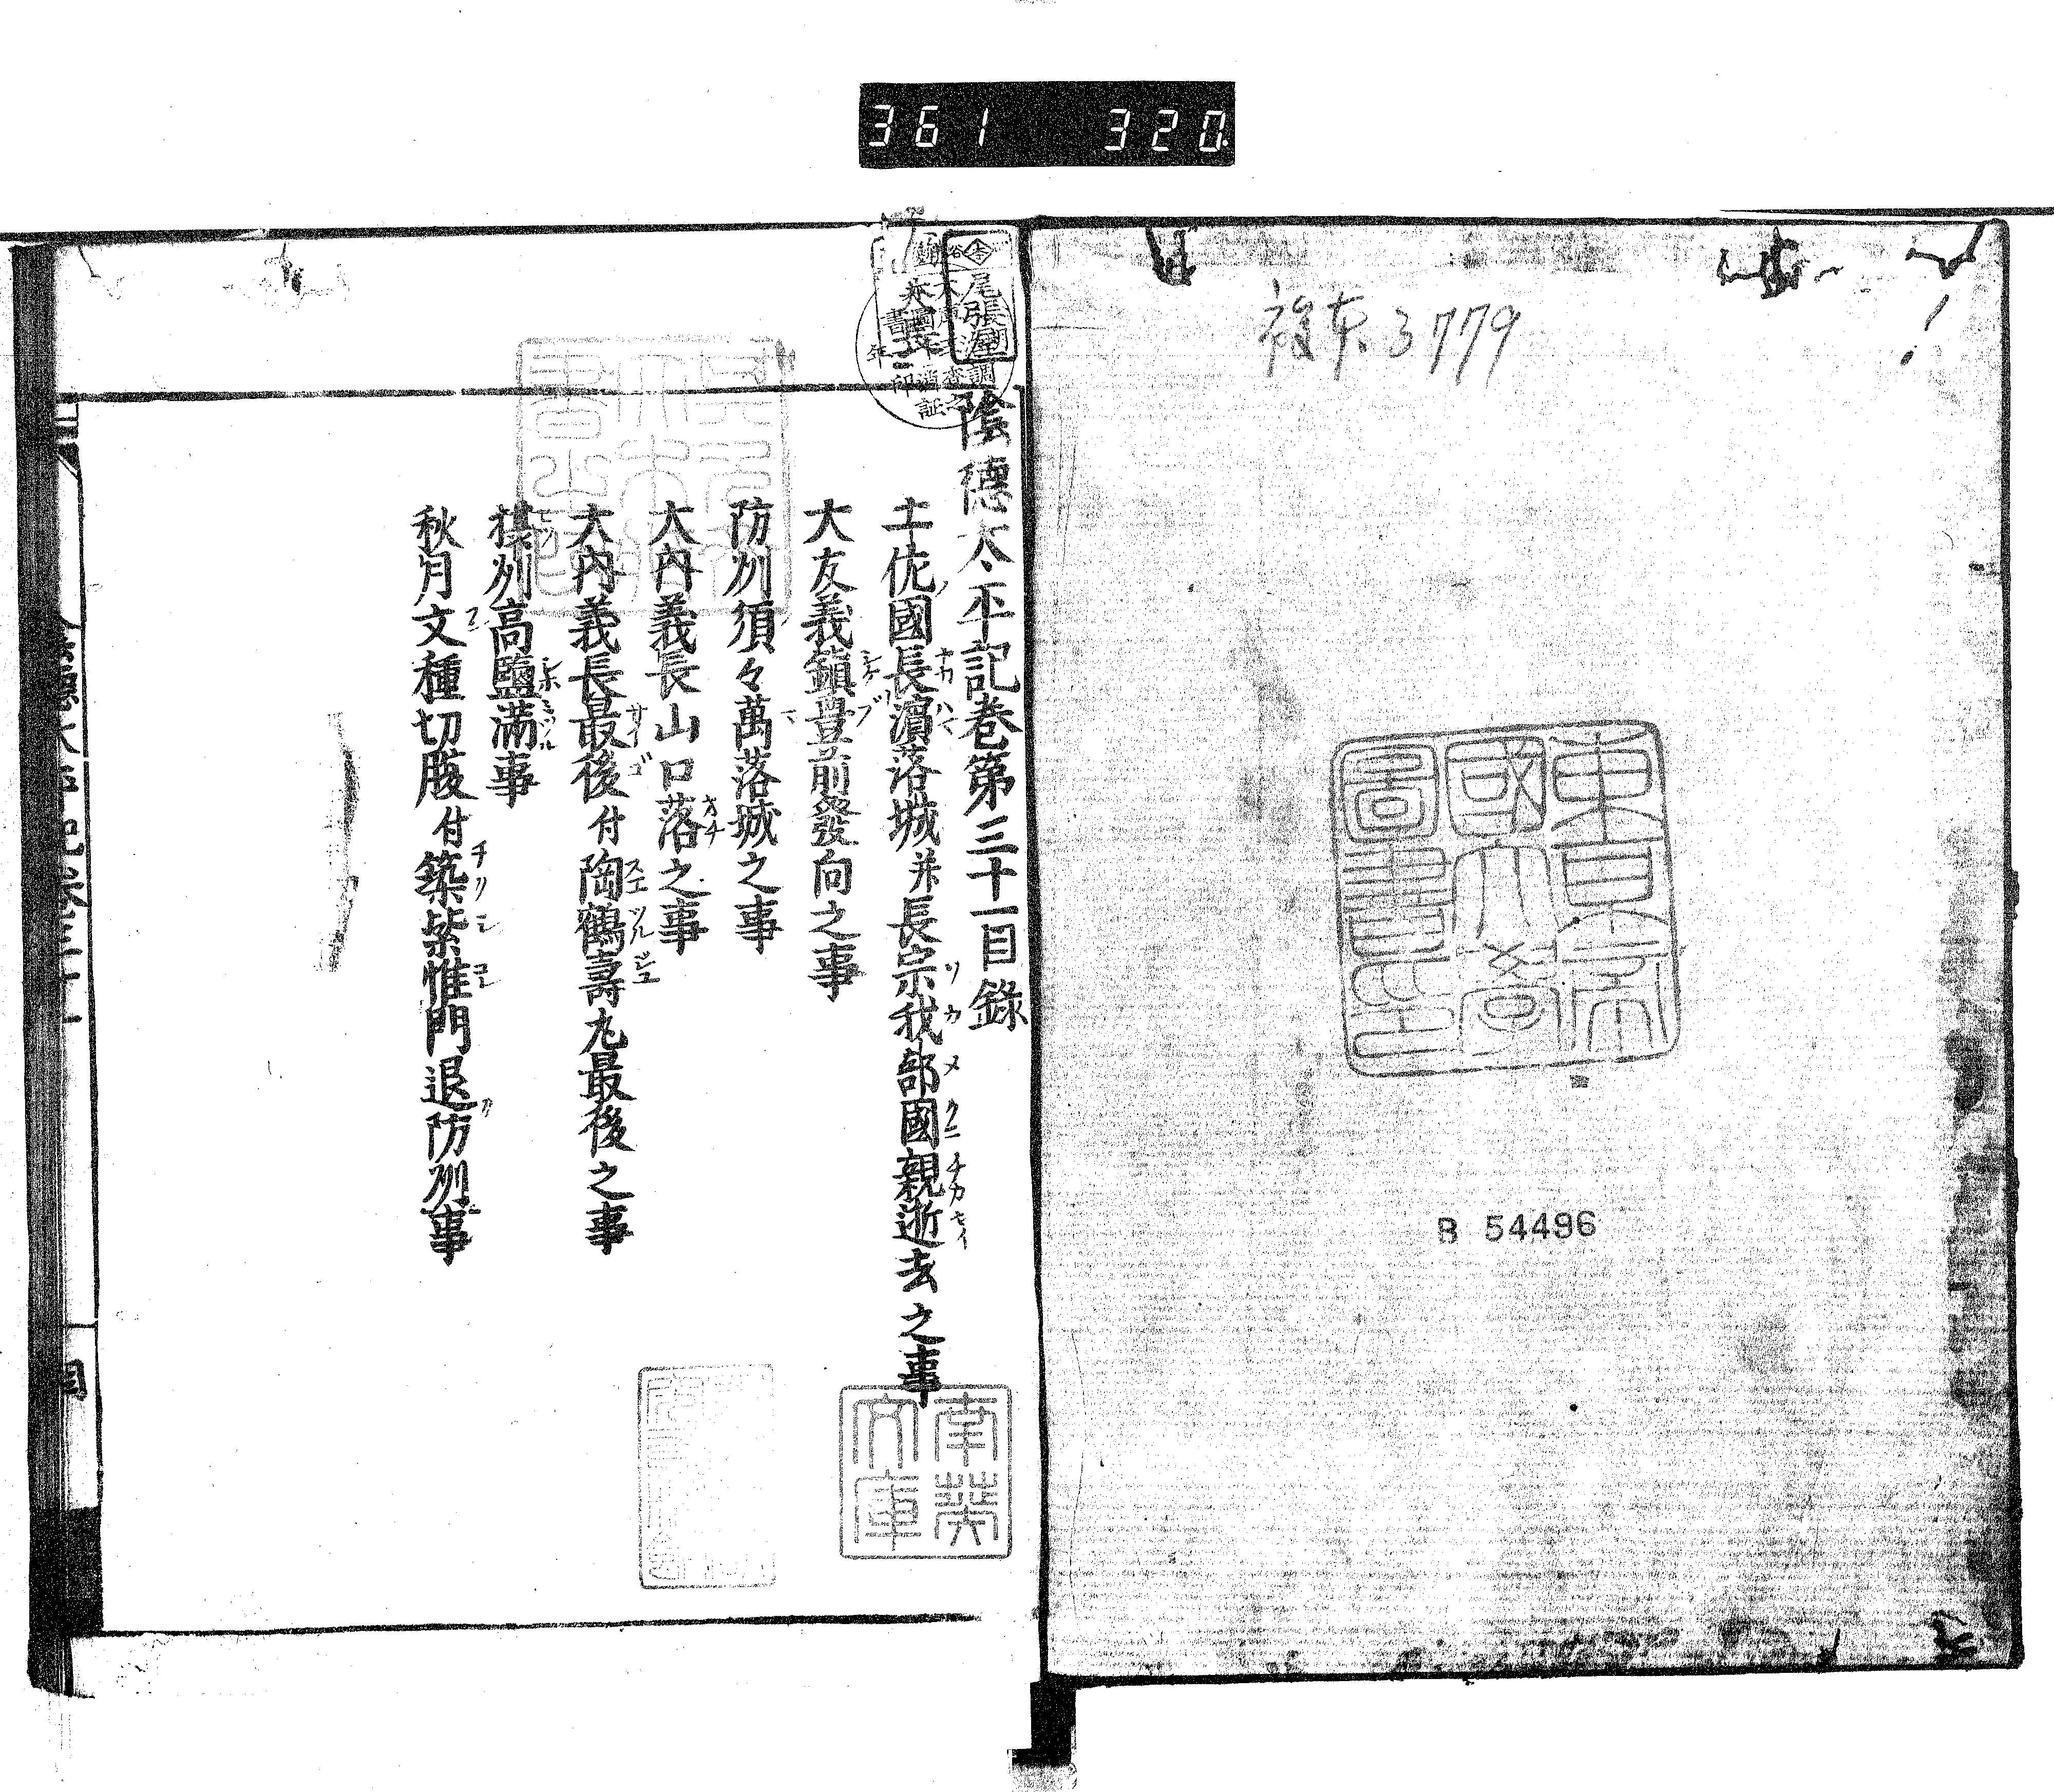 361 320
複本 3779
東京帝
國大學
圖書印
B 54496
尾張屋
陰德太平記卷第三十一目錄
土佐國長濵落城并長宗我部國親逝去之事
大友義鎮豊前發向之事
防刕須々萬落城之事
大內義長山口落之事
大內義長最後付陶鶴壽丸最後之事
藝刕高鹽滿事
秋月文種切腹付築紫惟門退防刕事
南葵
文庫